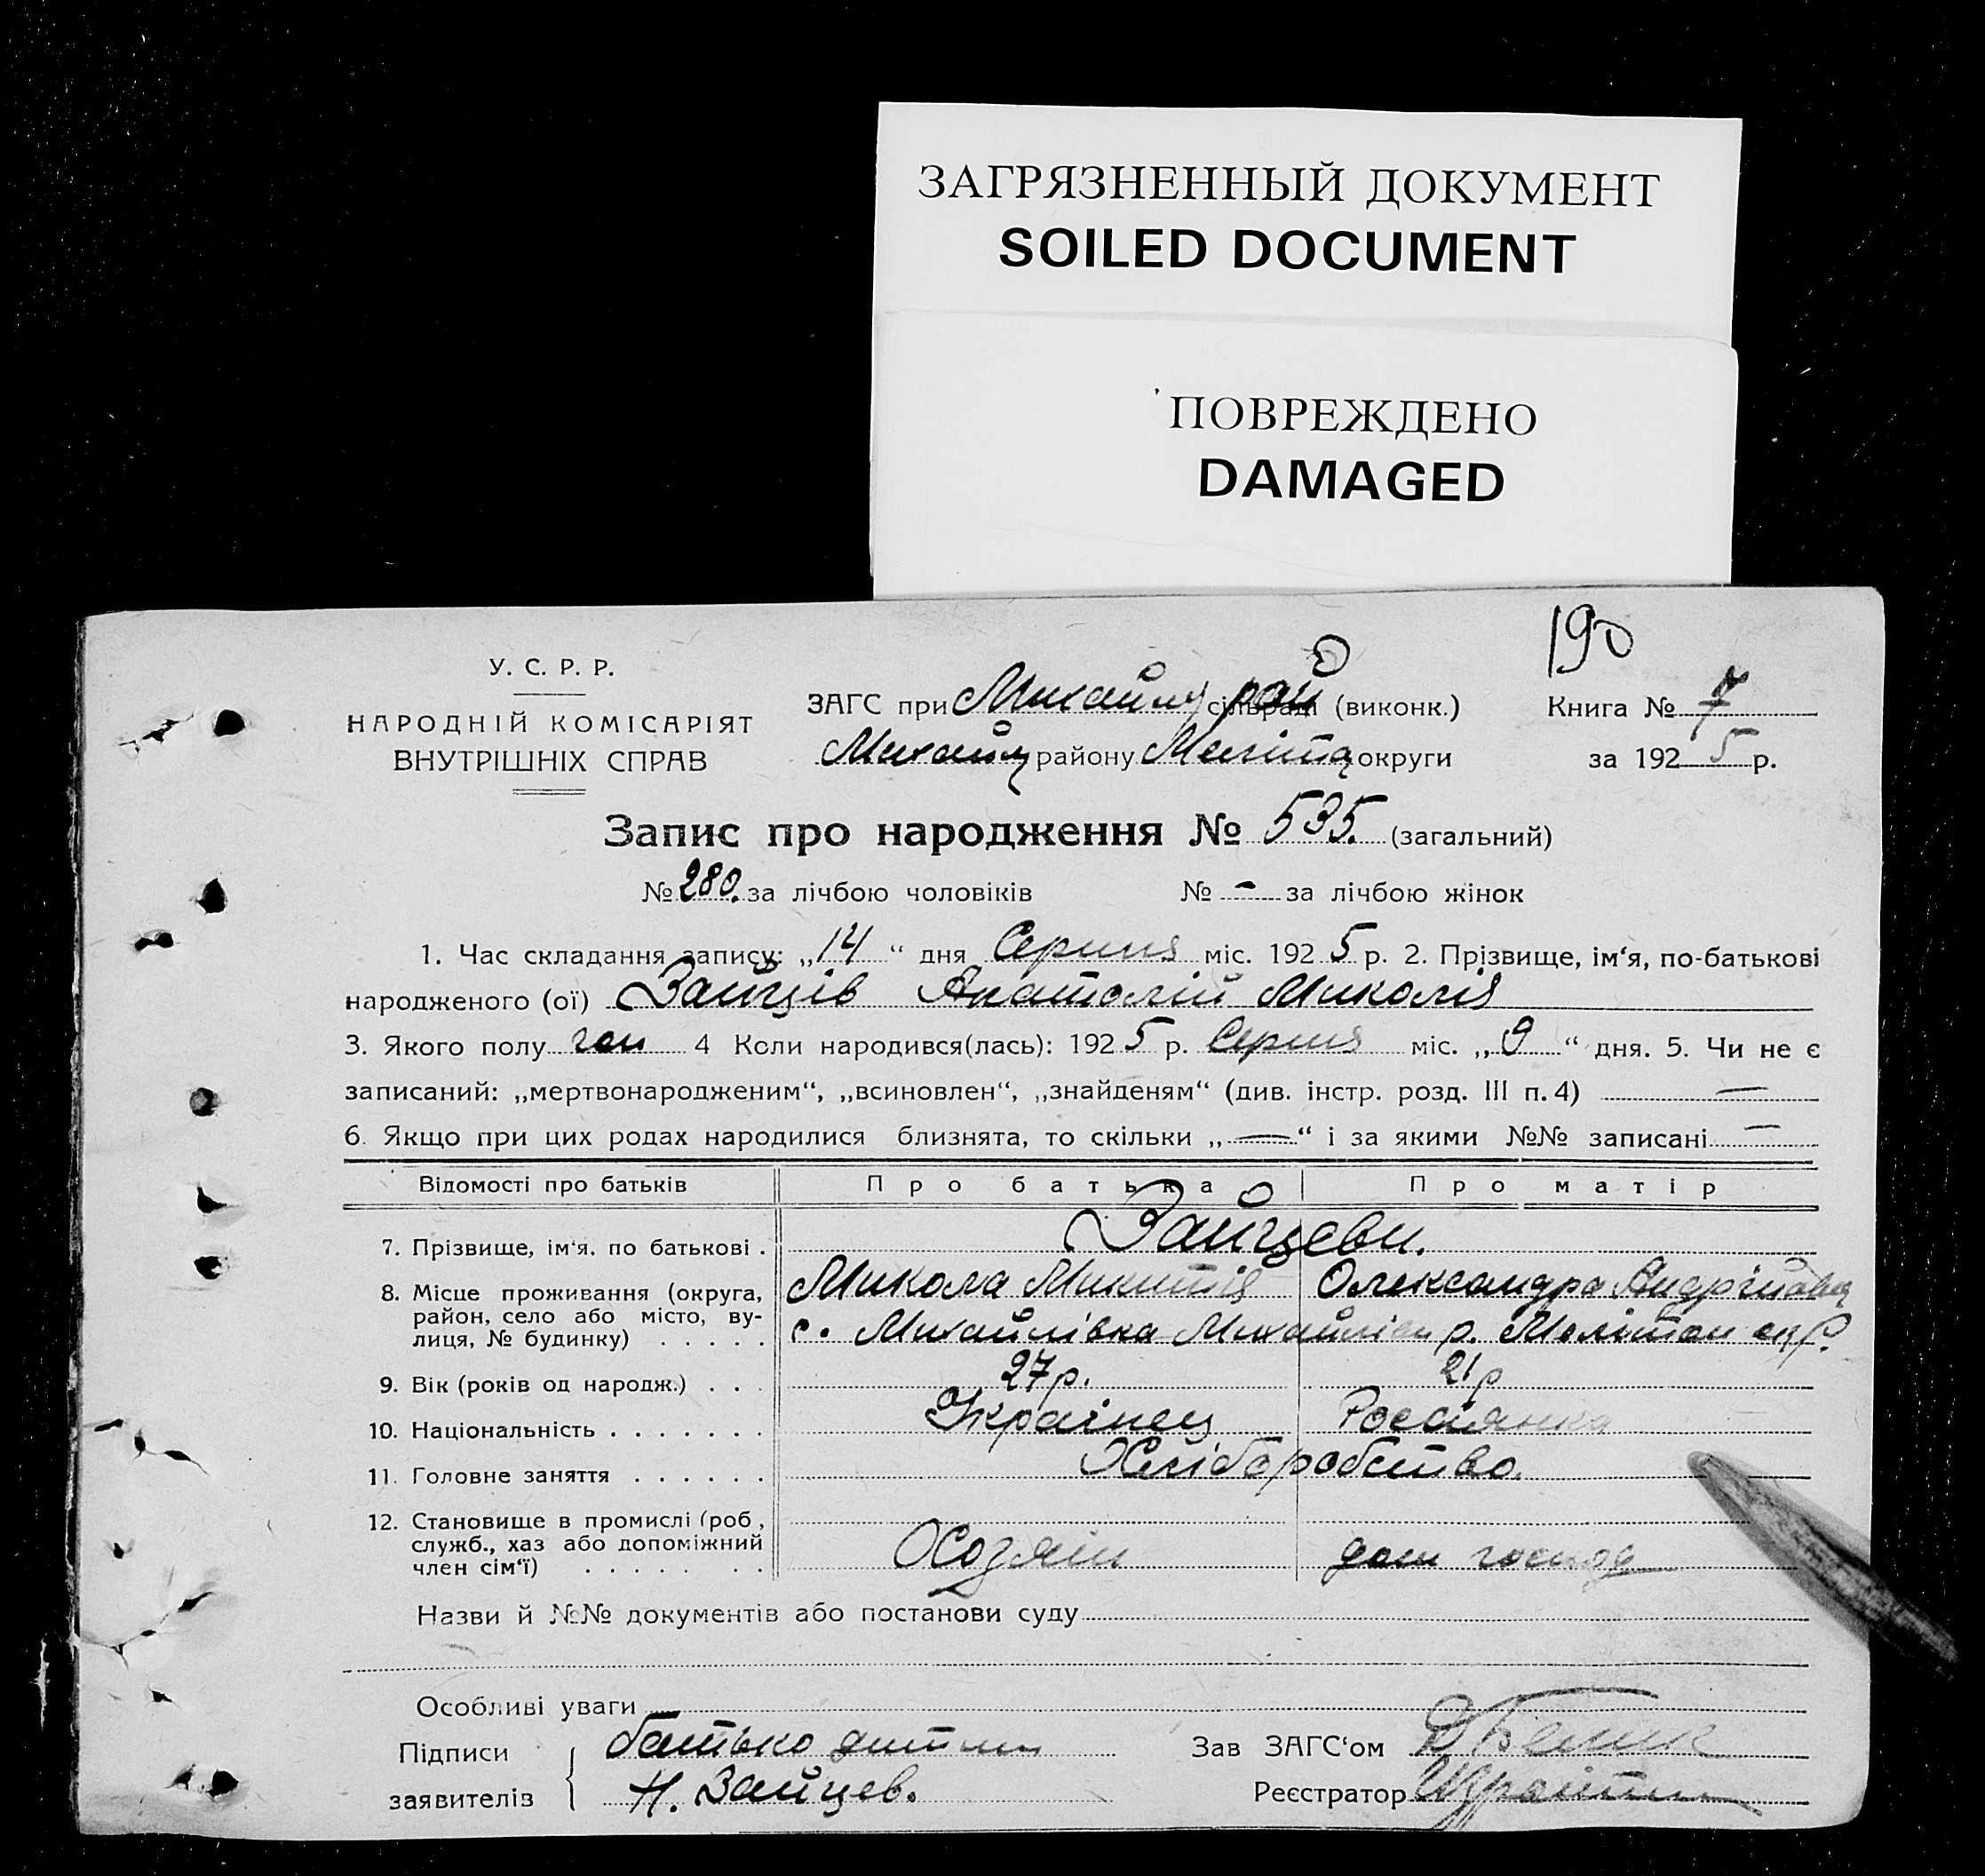 ЗАГРЯЗНЕННЫЙ ДОКУМЕНТ
SOILED DOCUMENT
ПОВРЕЖДЕНО
DAMAGED
190
У. С. Р. Р.
НАРОДНІЙ КОМІСАРІЯТ
ВНУТРІШНІХ СПРАВ
ЗАГС при Михайл рай сільраді (виконк.)
Михайл району Меліт округи
Книга № 7
за 1925 р.
Запис про народження № 535. (загальний)
№ 280. за лічбою чоловіків № - за лічбою жінок
1. Час складання запису: „14“ дня Серпня міс. 1925 р. 2. Прізвище, ім‘я, по-батькові
народженого (ої) Зайців Анатолій Микол
3. Якого полу чол 4 Коли народився(лась): 1925 р. Серпня міс. „9“ дня. 5. Чи не є
записаний: „мертвонародженим“, „всиновлен“, „знайденям“ (див. інстр. розд. III п. 4) —
6. Якщо при цих родах народилися близнята, то скільки „—“ і за якими №№ записані —
Відомості про батьків Про батька Про матір
7. Прізвище, ім‘я. по батькові . Зайцеви.
Микола Микит Олександра Андріївна
8. Місце проживання (округа,
район, село або місто, ву-
лиця, № будинку) . . . . . с. Михайлівка Михайлів р. Меліто окр.
9. Вік (років од народж.) . . . 27 р. 21 р
10. Національність . . . . . . . Українец Росіянка
11. Головне заняття . . . . . . Хліборобство.
12. Становище в промислі (роб,
служб., хаз або допоміжний
член сім‘ї) . . . . . . . Хозяїн дом госпо
Назви й №№ документів або постанови суду
Особливі уваги
Підписи
заявителів
батько дитини
Н. Зайцев.
Зав ЗАГС‘ом
Реєстратор